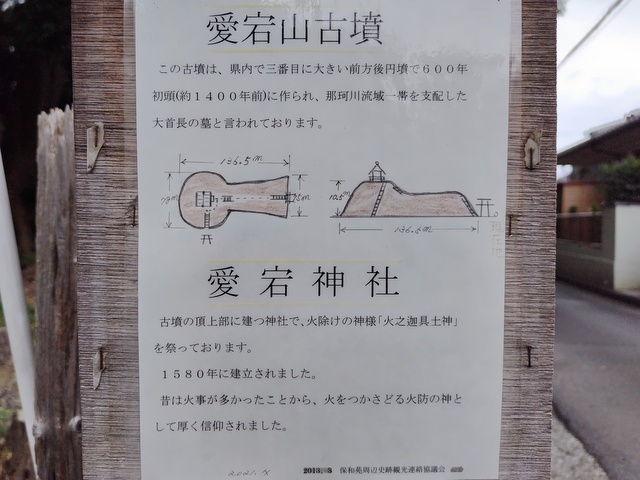 愛宕山古墳
この古墳は、県内で三番目に大きい前方後円墳で６００年
初頭(約１４００年前)に作られ、那珂川流域一帯を支配した
大首長の墓と言われております。
136.5m
10.5m
136.5m
愛宕神社
古墳の頂上部に建つ神社で、火除けの神様「火之迦具土神」
を祭っております。
１５８０年に建立されました。
昔は火事が多かったことから、火をつかさどる火防の神と
して厚く信仰されました。
保和苑周辺史跡観光連絡協議会